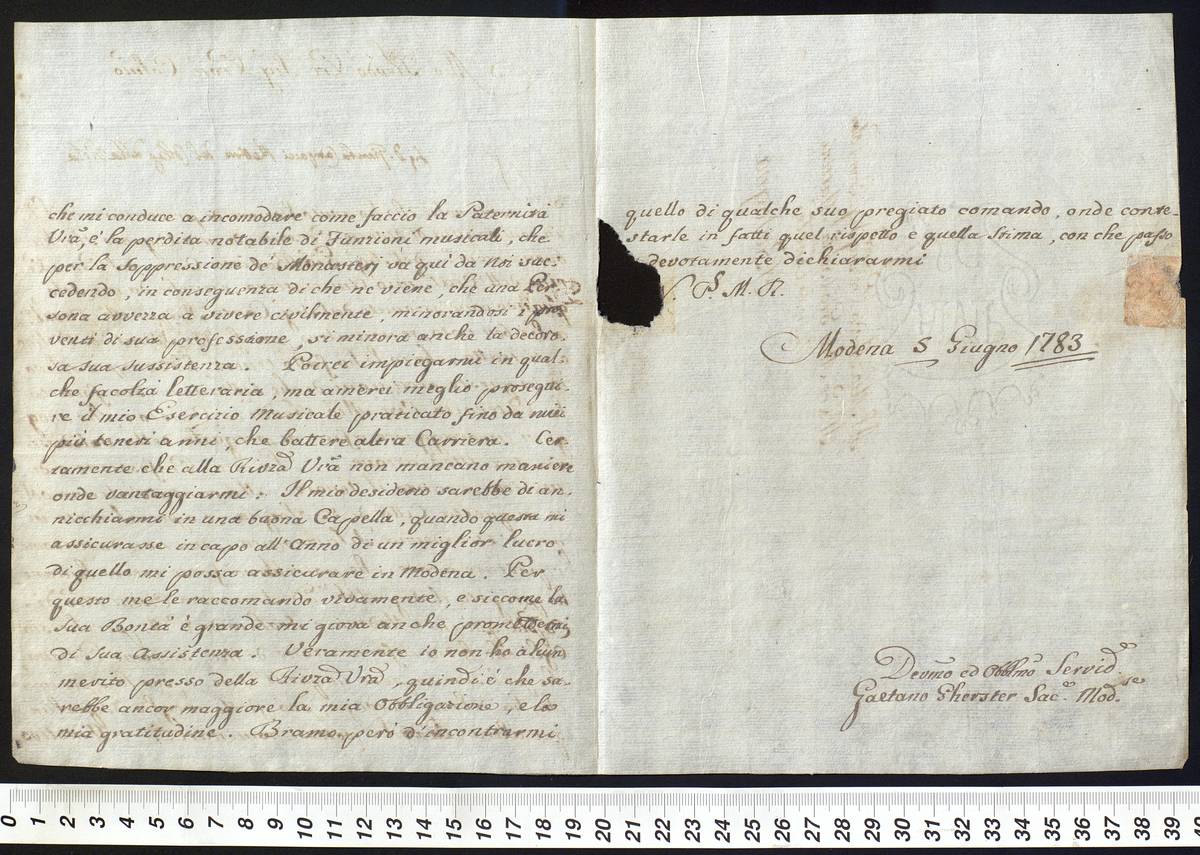 che mi conduce a incomodare come faccio la Paternità
Vrã, è la perdita notabile di Funzioni musicali, che
per la soppressione de' Monasterj va qui da noi suc=
cedendo, in conseguenza di che ne viene, che una Per=
sona avvezza a vivere civilmente, minorandosi i pro=
venti di sua professione, si minora anche la decoro=
sa sua sussistenza. Potrei impiegarmi in qual=
che facoltà letteraria, ma amerei meglio prosegui=
re il mio Esercizio Musicale praticato fino da miei
più teneri anni, che battere altra Carriera. Cer=
tamente che alla Rivzã Vrã non mancano maniere
onde vantaggiarmi. Il mio desiderio sarebbe di an=
nicchiarmi in una buona Capella, quando questa mi
assicurasse in capo all'Anno di un miglior lucro
di quello mi possa assicurare in Modena. Per
questo me le raccomando vivamente, e siccome la
sua Bontà è grande mi giova anche promettermi
di sua Assistenza. Veramente io non ho alcun
merito presso della Rivzã Vrã, quindi è che sa=
rebbe ancor maggiore la mia Obbligazione, e la
mia gratitudine. Bramo però d'incontrarmi
quello di qualche suo pregiato comando, onde conte=
starle in fatti quel rispetto e quella stima, con che passo
devotamente dichiararmi
P.S. M. R.
Modena 5 Giugno 1783
Devmo ed Obblmo Servide
Gaetano Gherster Sac.e Mod.se
0 1 2 3 4 5 6 7 8 9 10 11 12 13 14 15 16 17 18 19 20 21 22 23 24 25 26 27 28 29 30 31 32 33 34 35 36 37 38 39 40